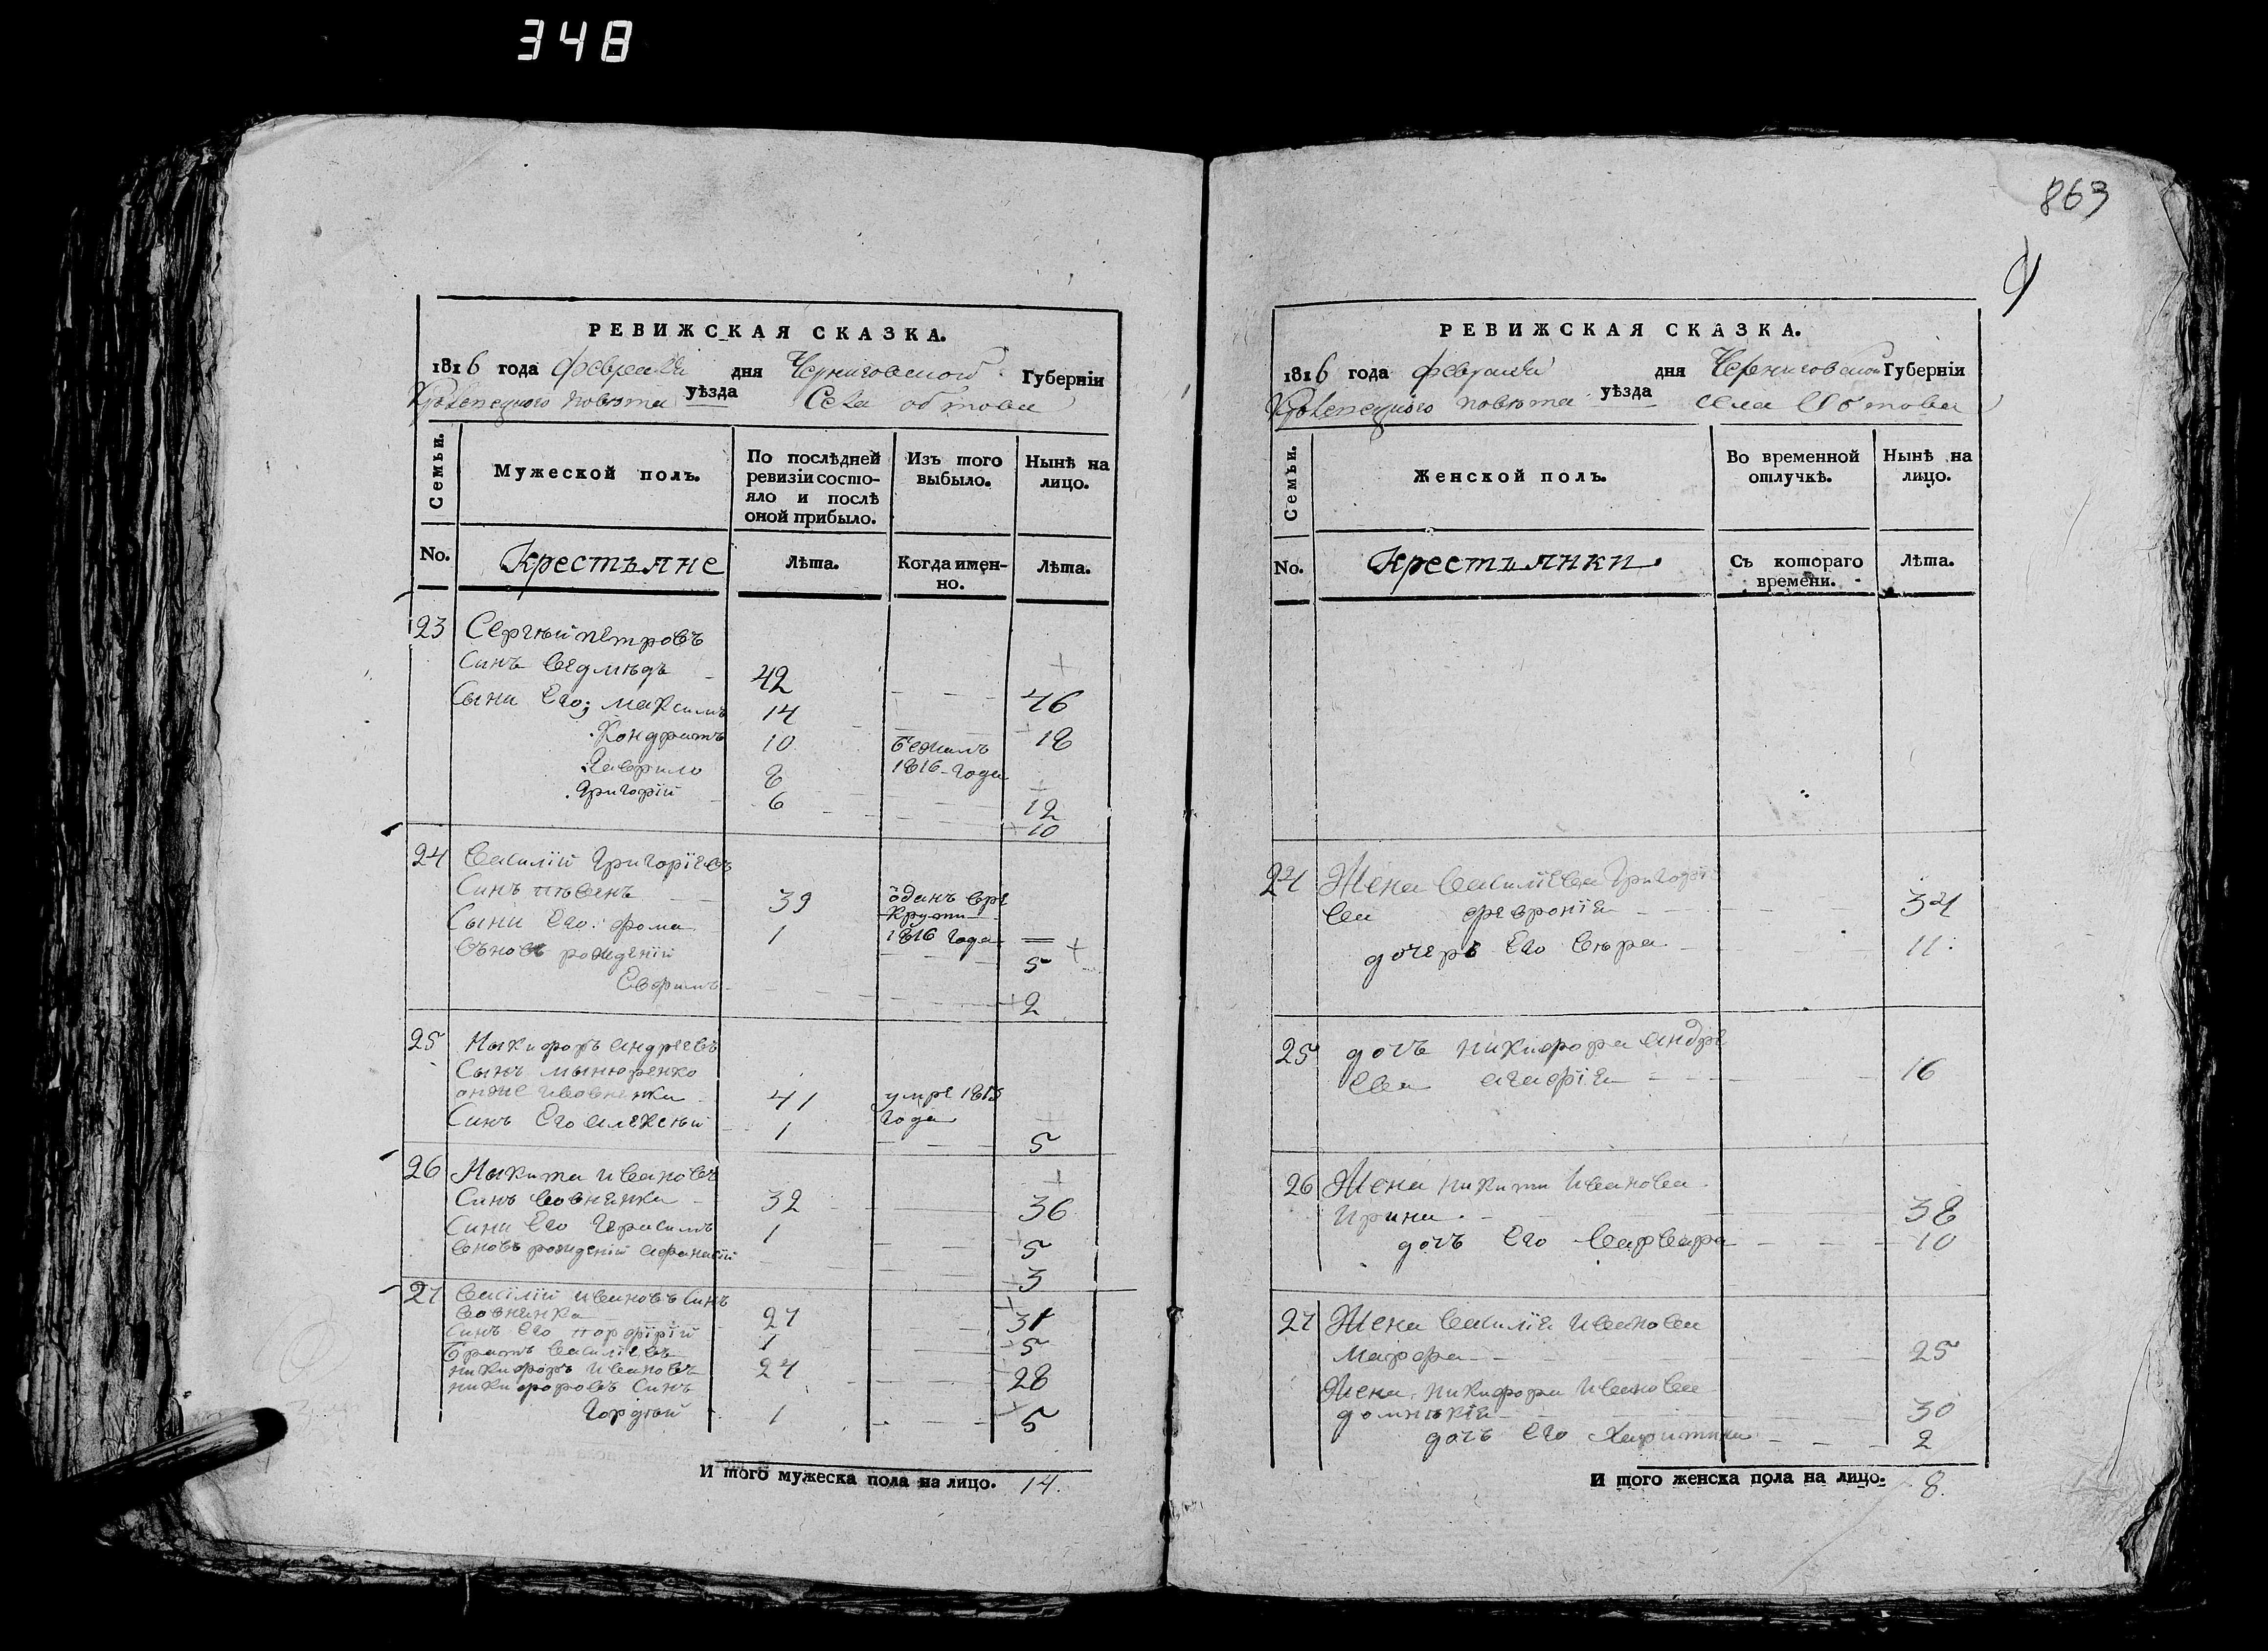 348
863
РЕВИЖСКАЯ СКАЗКА.
1816 года февраля дня Черниговской Губернїи
Кролевецкого повѣта уѣзда Села обтова
Семьи.
Мужеской полъ.
По послѣдней ревизїи состояло и послѣ оной прибыло.
Изъ того выбыло.
Нынѣ на лицо.
No.
Крестьяне
Лѣта.
Когда именно.
Лѣта.
23 Сергѣй петровъ
Синъ ведмѣдь 42 46
Сыни его; максимъ 14 18
Кондратъ 10 бежалъ
Гаврило 8 1816 года 12
Григорїй 6 10
24 василїй григорїевъ
Синъ пѣвень 39
Сыни его: фома 1 1816 года 5
вновъ рождении
Евфимъ 2
25 Никифоръ андреевъ
Сынъ
онже вовненка 41 умре 1815
Синъ его алексѣй 1 года 5
26 Никита ивановъ
Синъ вовненка 32 36
Сини его герасимъ 1 5
вновъ рожденїй афанасїй 3
27 василїй ивановъ Синъ
вовненка 27 31
Синъ его порфїрїй 1 5
братъ василїевъ
никифоръ ивановъ 24 28
никифоровъ Синъ
гордѣй 1 5
И того мужеска пола на лицо. 14.
РЕВИЖСКАЯ СКАЗКА.
1816 года февраля дня Черниговской Губернїи
Кролевецкого повѣта уѣзда села Обтова
Семьи.
Женской полъ.
Во временной отлучкѣ.
Нынѣ на лицо.
No.
Крестьянки
Съ котораго времени.
Лѣта.
24 Жена василїева григорїе
ва феврония 34
дочерь его вѣра 11
25 дочъ никифора андре
ева агафїя 16
26 Жена никити иванова
ирина 38
дочъ его варвара 10
27 Жена василїя иванова
марфа 25
Жена никифора иванова
домникїя 30
дочъ его харитина 2
И того женска пола на лицо. 8.